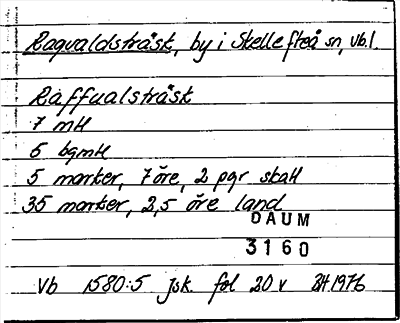 Ragvaldsträsk, by i Skellefteå sn, Vb.l.
Raffualsträsk
7 mtl
6 bgmtl
5 marker, 7 öre, 2 pgr skatt
35 marker, 2,5 öre land
DAUM
3160
Vb 1580:5 Jsk. fol 20 v BH 1976